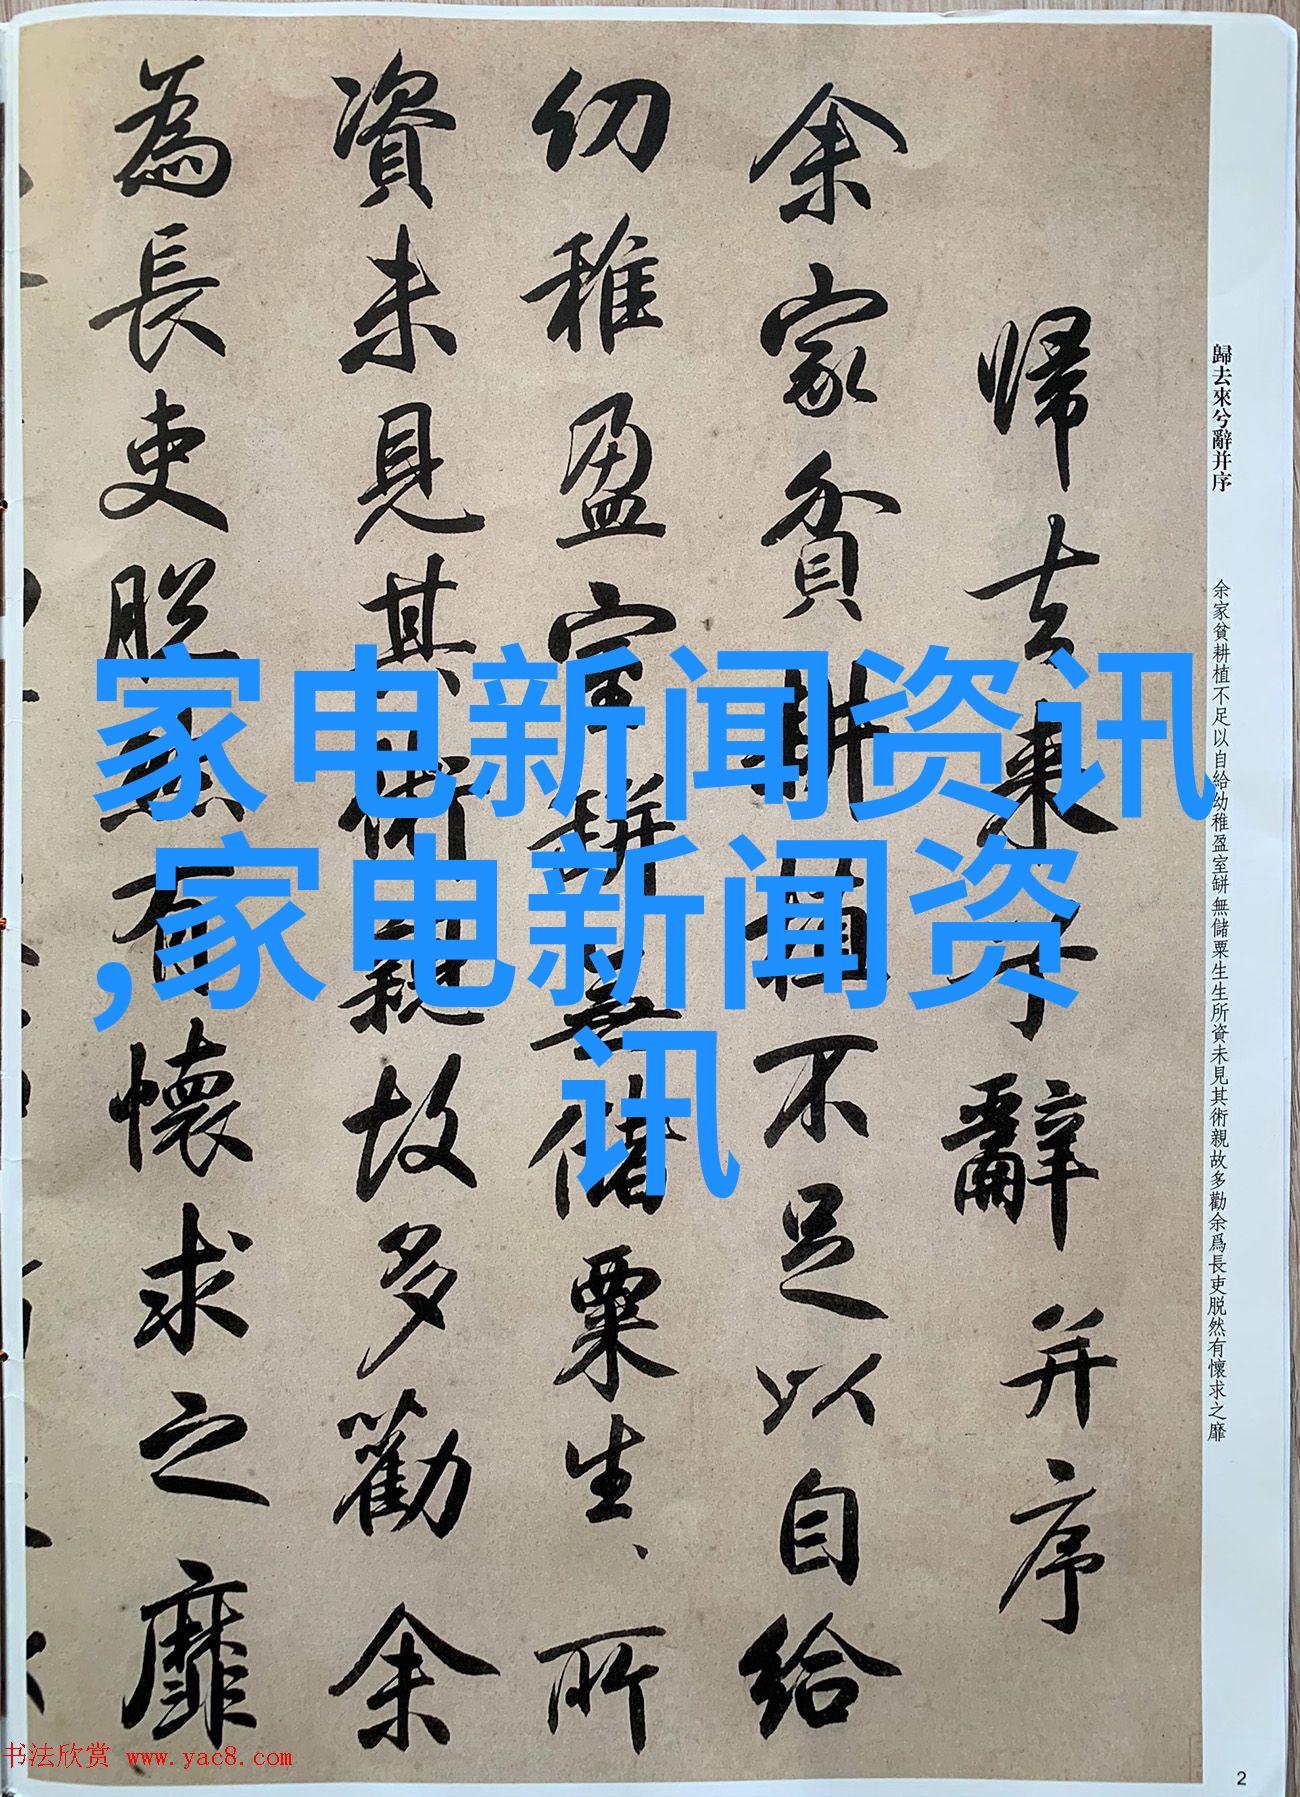 歸去來兮辭并序
余家貧耕植不足以自給幼稚盈室缾無儲粟生生所資未見其術親故多勸余爲長吏脱然有懷求之靡
帰去来兮辭并序
余家貧耕植不足以自給
幼稚盈室缾無儲粟生、所
資未見其術親故多勸余
為長吏脫然有懷求之靡
家电新闻资讯
,家电新闻资
讯
书法欣赏 www.yac8.com
2